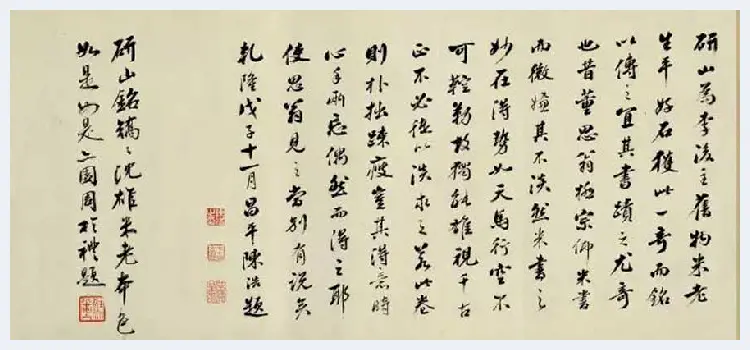 研山為李後主舊物米老
生平好石獲此一奇而銘
以傳之宜其書蹟之尤奇
也昔董思翁極宗仰米書
而微嫌其不淡然米書之
妙在得勢如天馬行空不
可鞚勒故獨能雄視千古
正不必徒以淡求之若此卷
則朴拙疎瘦豈其得意時
心手兩忘偶然而得之耶
使思翁見之當別有說矣
乾隆戊子十一月昌平陳浩題
研山銘沈雄米老本色
如是如是周於禮題